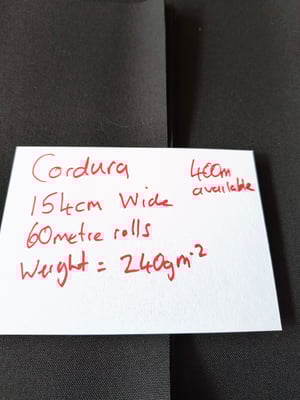 Cordura
154cm Wide
60metre rolls
Weight = 240gm⁻²
400m
available